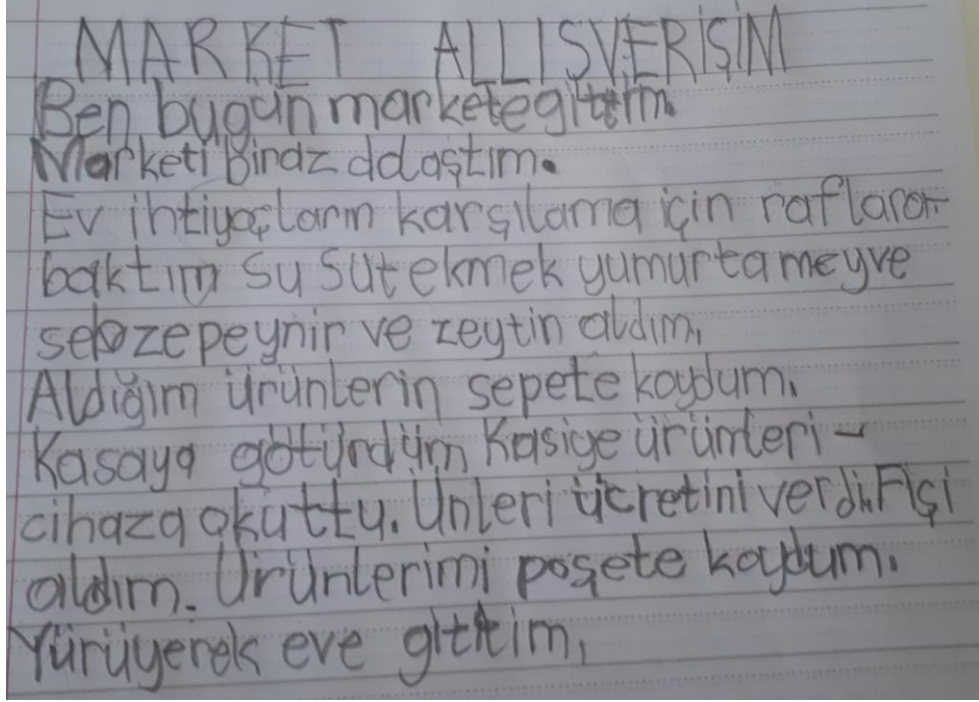 MARKET ALLISVERİŞİM
Ben bugün marketegittim.
Marketi biraz ddaştım.
Ev ihtiyaçların karşılama için raflara
baktım su süt ekmek yumurta meyve
sebze peynir ve zeytin aldım,
Aldığım ürünlerin sepete koydum.
Kasaya götürdüm Kasiye ürünleri-
cihaza okuttu. Ünleri ücretini verdi. Fişi
aldım. Ürünlerimi poşete koydum.
Yürüyerek eve gittim,